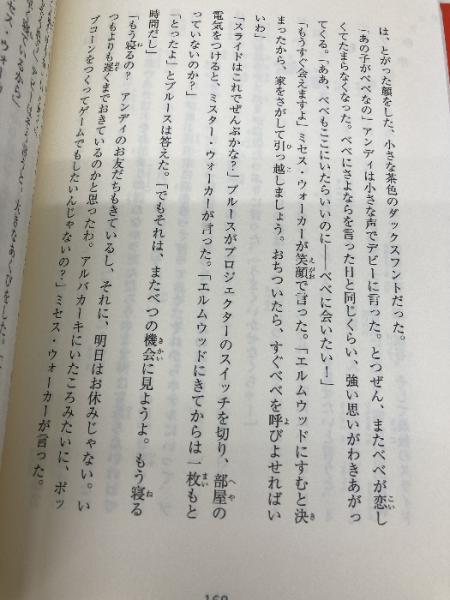 は、とがった顔をした、小さな茶色のダックスフントだった。
「あの子がペペなの」アンディは小さな声でデビーに言った。とつぜん、またペペが恋し
くてたまらなくなった。ペペにさよならを言った日と同じくらい、強い思いがわきあがっ
てくる。「ああ、ペペもここにいたらいいのに――ペペに会いたい！」
「もうすぐ会えますよ」ミセス・ウォーカーが笑顔で言った。「エルムウッドにすむと決
まったから、家をさがして引っ越しましょう。おちついたら、すぐペペを呼びよせればい
いわ」
「スライドはこれでぜんぶかな？」ブルースがプロジェクターのスイッチを切り、部屋の
電気をつけると、ミスター・ウォーカーが言った。「エルムウッドにきてからは一枚もと
っていないのか？」
「とったよ」とブルースは答えた。「でもそれは、またべつの機会に見ようよ。もう寝る
時間だし」
「もう寝るの？　アンディのお友だちもきているし、それに、明日はお休みじゃない。い
つもよりも遅くまでおきているのかと思ったわ。アルバカーキにいたころみたいに、ポッ
プコーンをつくってゲームでもしたいんじゃないの？」ミセス・ウォーカーが言った。
169